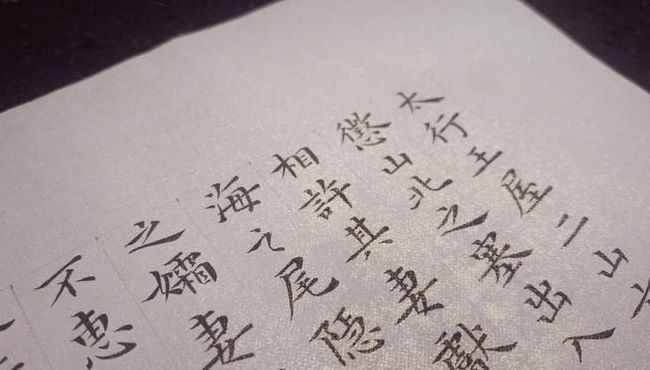 太行王屋二山
懲山北之塞出入
相許其妻獻
海之尾隱
之孀妻
不惠